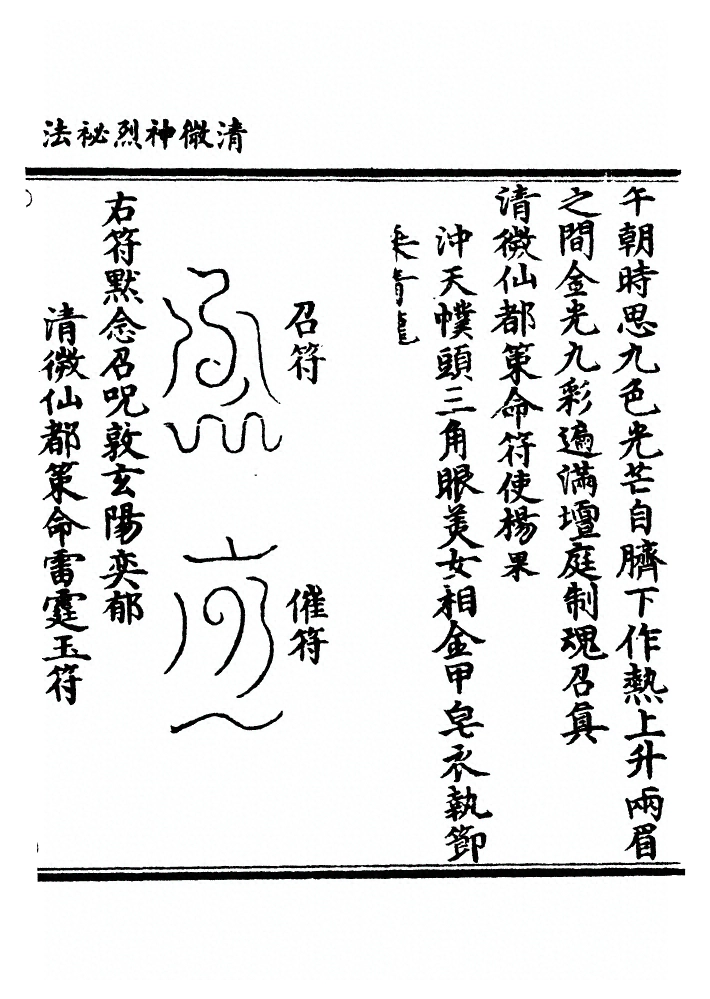 清微神烈祕法
午朝時思九色光芒自臍下作熱上升兩眉
之間金光九彩遍滿壇庭制魂召眞
清微仙都策命符使楊杲
沖天幞頭三角眼美女相金甲皂衣執節
乘青龍
召符
催符
右符默念召呪敦玄陽奕郁
清微仙都策命雷霆玉符